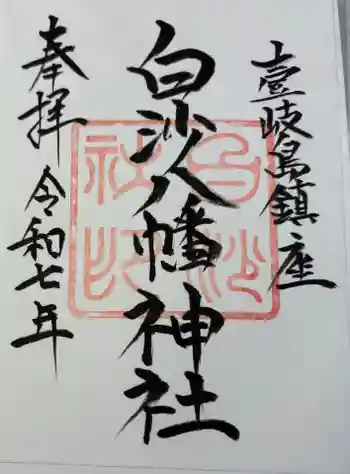 壹岐島鎮座
白沙八幡神社
奉拝
令和七年